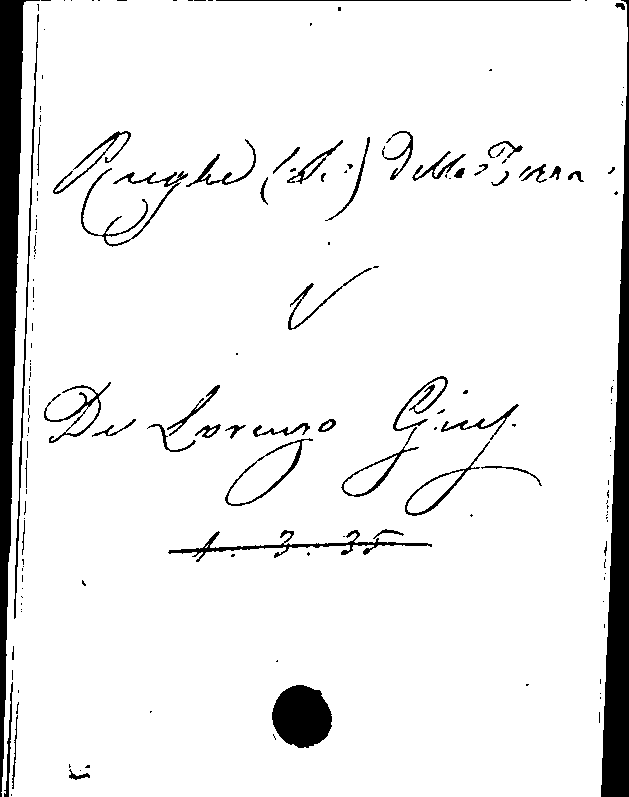 Rughe (le) della Terra
V
De Lorenzo Gius.
1. 3. 35